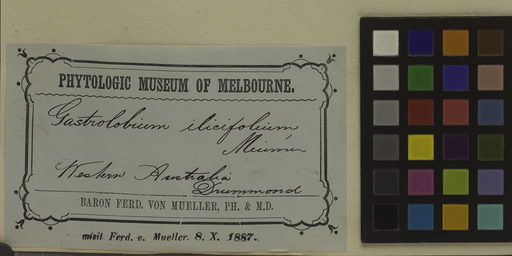 PHYTOLOGIC MUSEUM OF MELBOURNE.
Gastrolobium ilicifolium
Meissner
Western Australia
Drummond
BARON FERD. VON MUELLER, PH. & M.D.
misit Ferd. v. Mueller. 8. X. 1887.